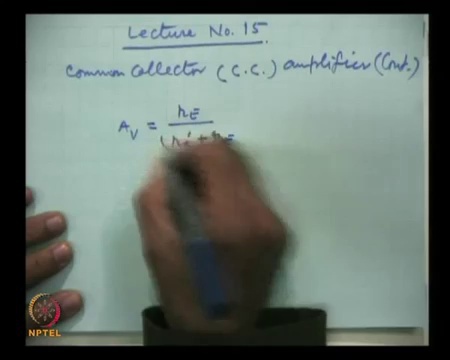 Lecture No. 15.
Common Collector (C.C.) amplifier (Cont.)
A_V = r_E / (r_e' + r_E
NPTEL